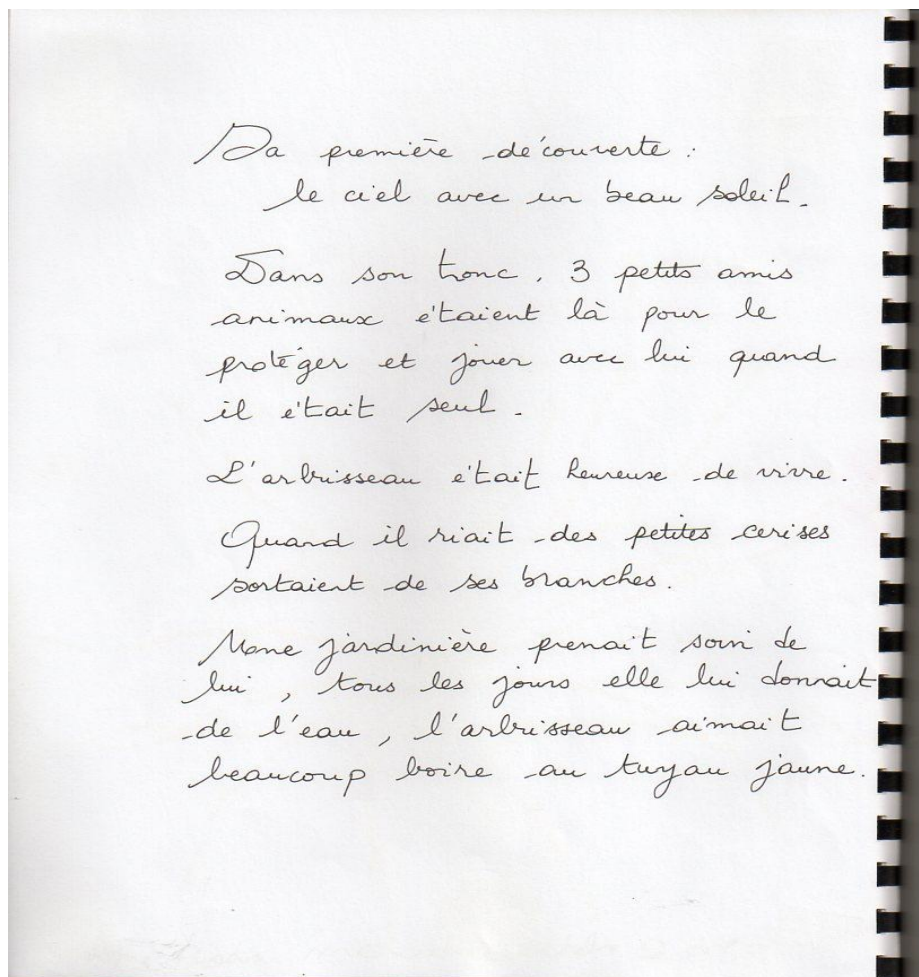 Sa première découverte :
le ciel avec un beau soleil.
Dans son tronc, 3 petits amis
animaux étaient là pour le
protéger et jouer avec lui quand
il était seul.
L'arbrisseau était heureuse de vivre.
Quand il riait des petites cerises
sortaient de ses branches.
Mme jardinière prenait soin de
lui, tous les jours elle lui donnait
de l'eau, l'arbrisseau aimait
beaucoup boire au tuyau jaune.